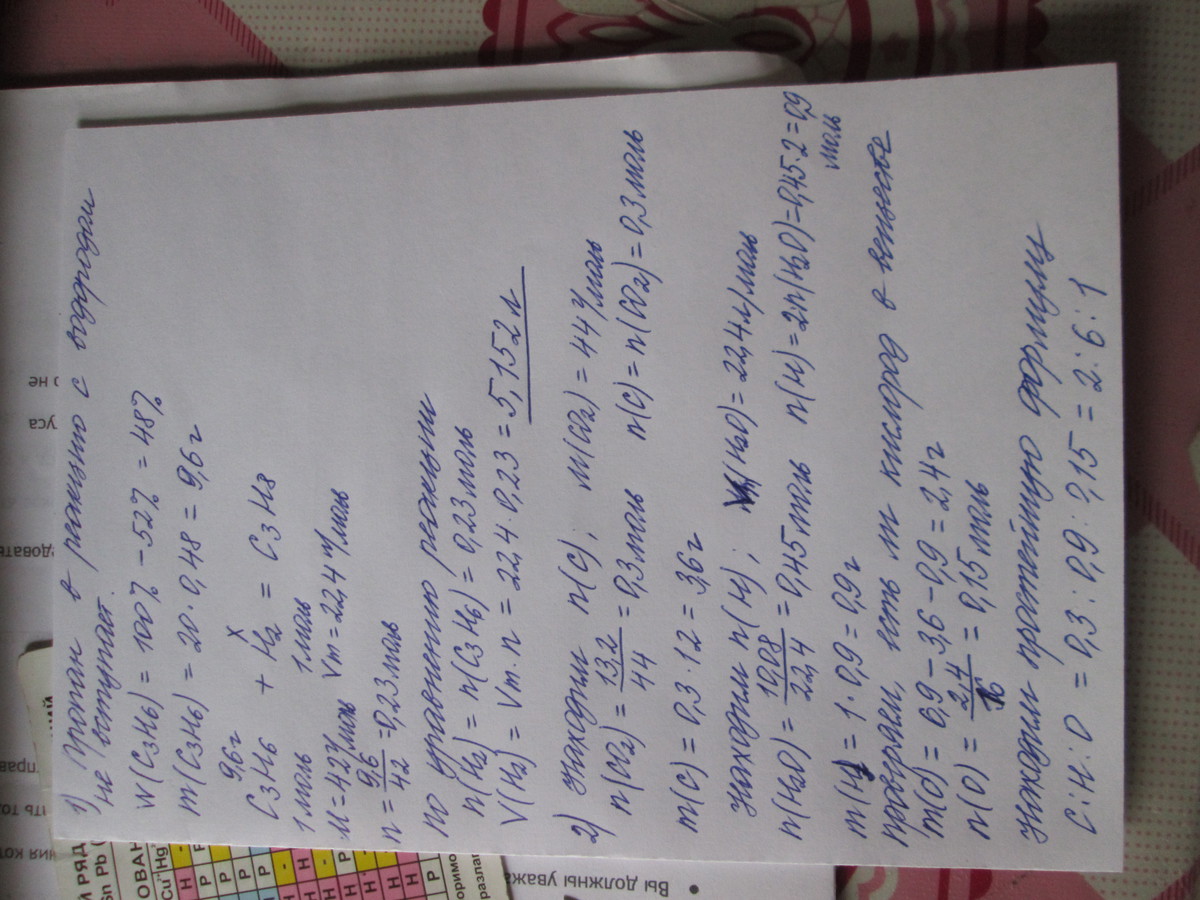 1) Пропан в реакцию с водородом
не вступает.
W(C3H6) = 100% - 52% = 48%
m(C3H6) = 20 · 0,48 = 9,6 г
9,6г x
C3H6 + H2 = C3H8
1 моль 1 моль
M = 42 г/моль Vm = 22,4 л/моль
n = 9,6/42 = 0,23 моль
по уравнению реакции
n(H2) = n(C3H6) = 0,23 моль
V(H2) = Vm · n = 22,4 · 0,23 = 5,152 л
2) Находим n(C); m(CO2) = 44 г/моль
n(CO2) = 13,2/44 = 0,3 моль n(C) = n(CO2) = 0,3 моль
m(C) = 0,3 · 12 = 3,6 г
находим n(H); Vm(H2O) = 22,4 л/моль
n(H2O) = 10,08/22,4 = 0,45 моль n(H) = 2·n(H2O) = 0,45·2 = 0,9
моль
m(H) = 1 · 0,9 = 0,9 г
проверяем, есть ли кислород в веществе
m(O) = 6,9 - 3,6 - 0,9 = 2,4 г
n(O) = 2,4/16 = 0,15 моль
находим простейшую формулу
C : H : O = 0,3 : 0,9 : 0,15 = 2 : 6 : 1
Вы должны